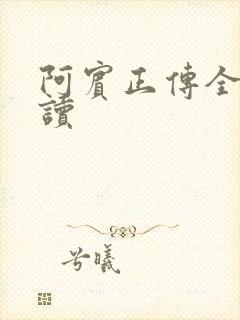 阿賓正傳全
讀
兮曦